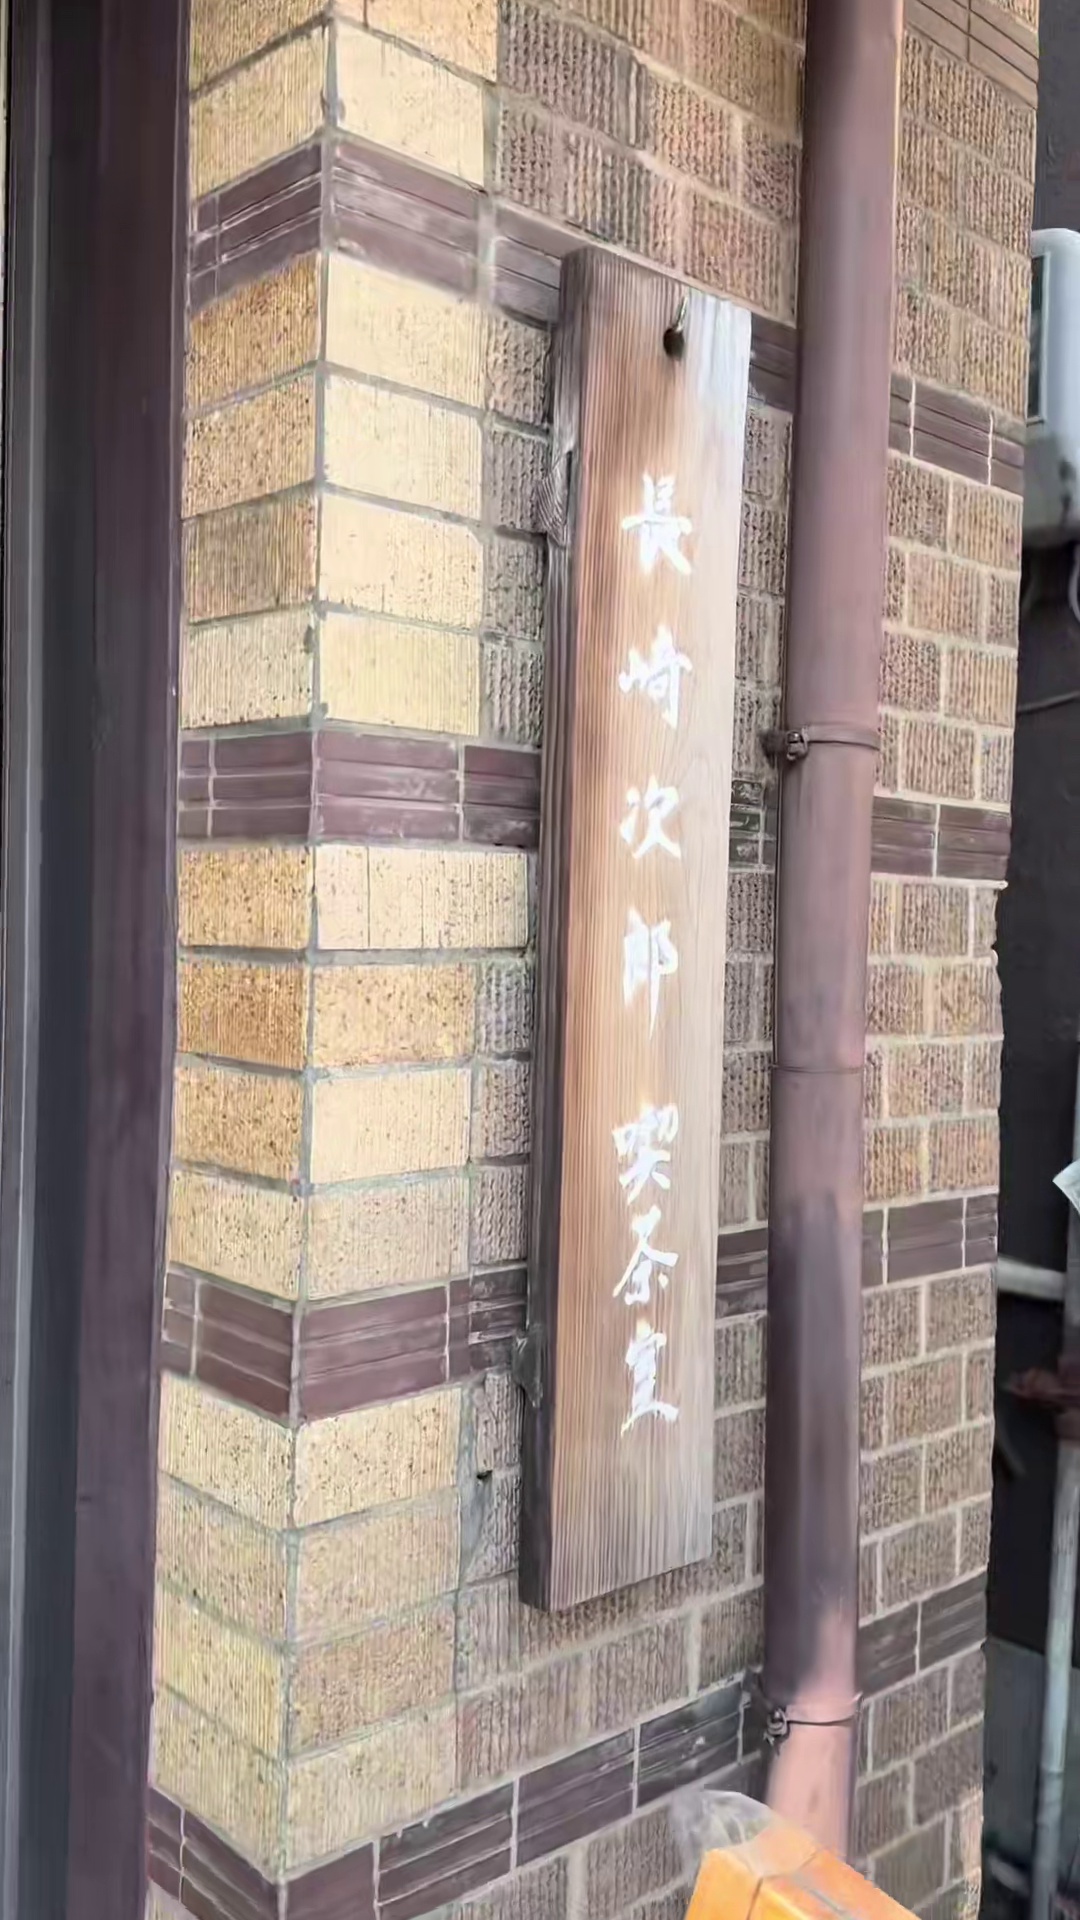 長崎次郎喫茶室